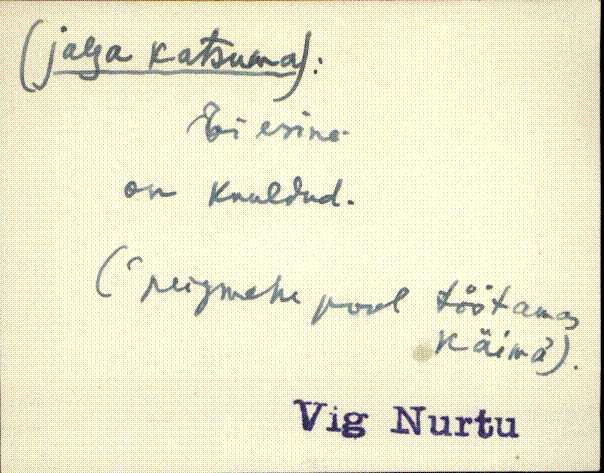 (jalga katsuma):
Ei esine.
on kuuldud.
(' peigmehe pool töötamas
käima').
Vig Nurtu